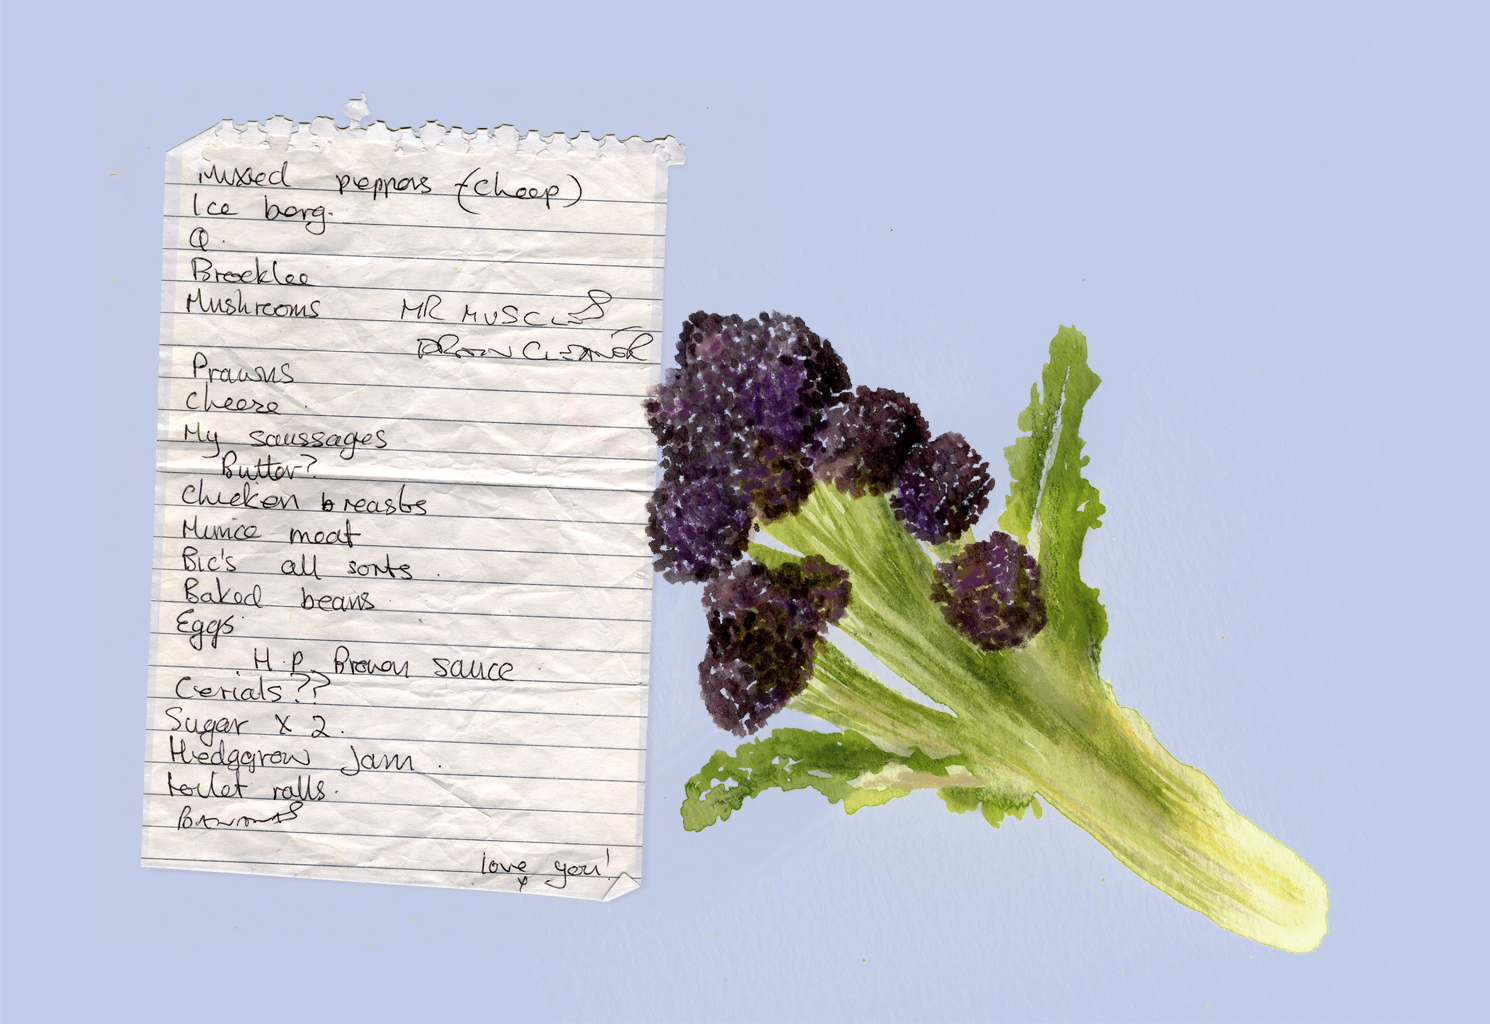 Mixed peppers (cheep)
Ice berg.
Q.
Brocklee
Mushrooms MR MUSCLES
DRAIN CLEANER
Prawns
Cheese
My saussages
Butter?
Chicken breasts
Mince meat
Bic's all sorts.
Baked beans
Eggs
H.P. Brown sauce
Cerials??
Sugar x 2.
Hedggrow Jam.
toilet rolls.
BANANAS
love you!
x